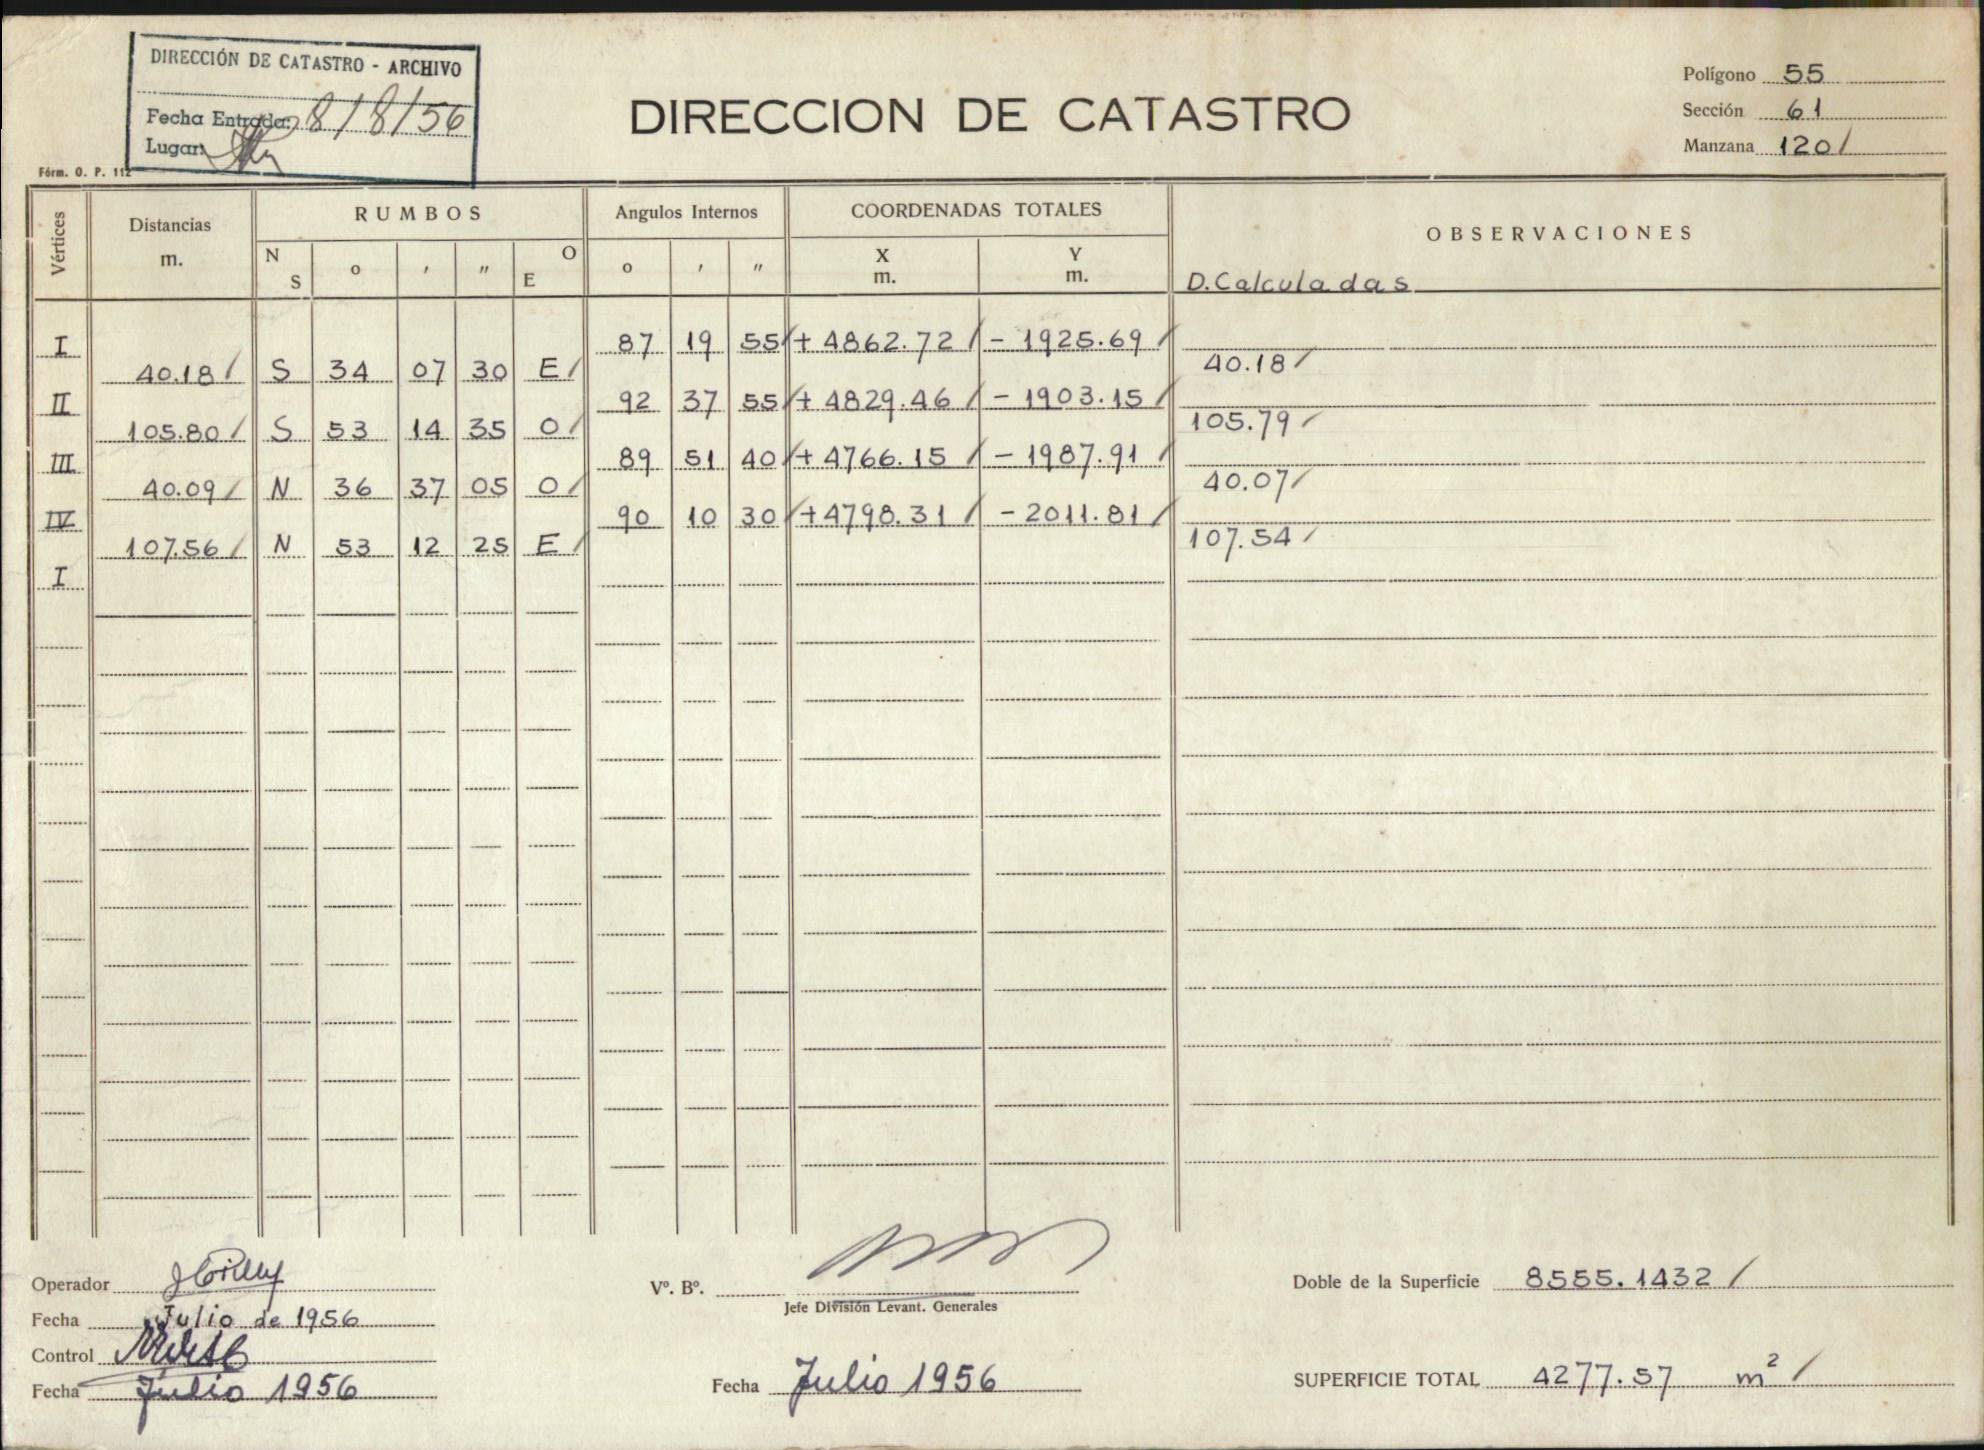 DIRECCIÓN DE CATASTRO - ARCHIVO
Fecha Entrada: 8/8/56
Lugar:
Fórm. O. P. 112
DIRECCION DE CATASTRO
Polígono 55
Sección 61
Manzana 120/
Vértices Distancias m. RUMBOS Angulos Internos COORDENADAS TOTALES OBSERVACIONES
N S o ' " E O o ' " X m. Y m. D. Calculadas
I 87 19 55/ + 4862.72 / - 1925.69 /
40.18/ S 34 07 30 E/ 40.18/
II 92 37 55/ + 4829.46 / - 1903.15 /
105.80/ S 53 14 35 O/ 105.79/
III 89 51 40/ + 4766.15 / - 1987.91 /
40.09/ N 36 37 05 O/ 40.07/
IV 90 10 30/ +4798.31 / - 2011.81/
107.56/ N 53 12 25 E/ 107.54/
I
Operador
Fecha Julio de 1956
Control
Fecha Julio 1956
Vº. Bº.
Jefe División Levant. Generales
Fecha Julio 1956
Doble de la Superficie 8555.1432/
SUPERFICIE TOTAL 4277.57 m²/